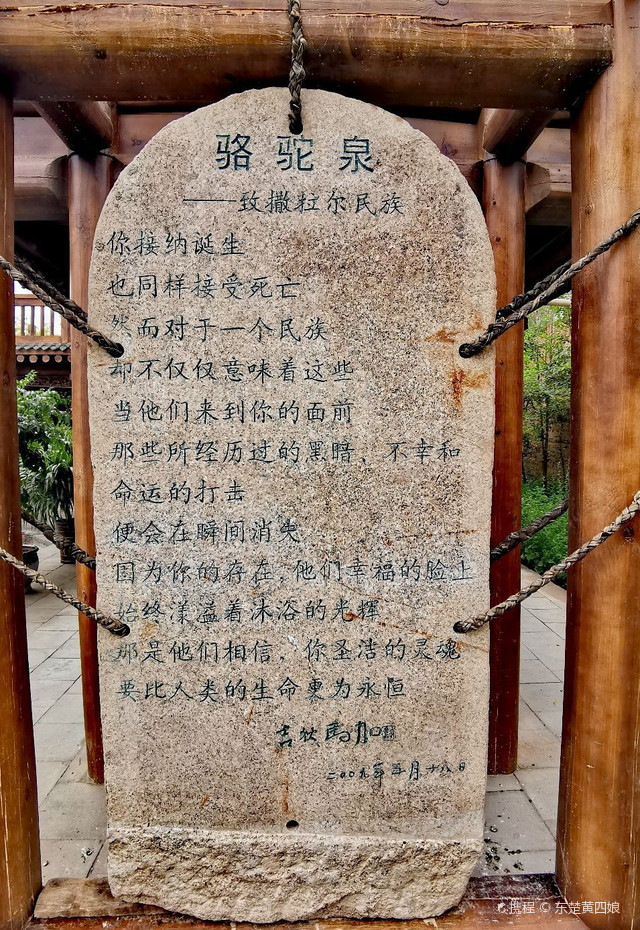 骆驼泉
——致撒拉尔民族
你接纳诞生
也同样接受死亡
然而对于一个民族
却不仅仅意味着这些
当他们来到你的面前
那些所经历过的黑暗，不幸和
命运的打击
便会在瞬间消失
因为你的存在，他们幸福的脸上
始终漾溢着沐浴的光挥
那是他们相信，你圣洁的灵魂
要比人类的生命更为永恒
吉狄马加
二〇〇九年三月十八日
携程 © 东楚黄四娘